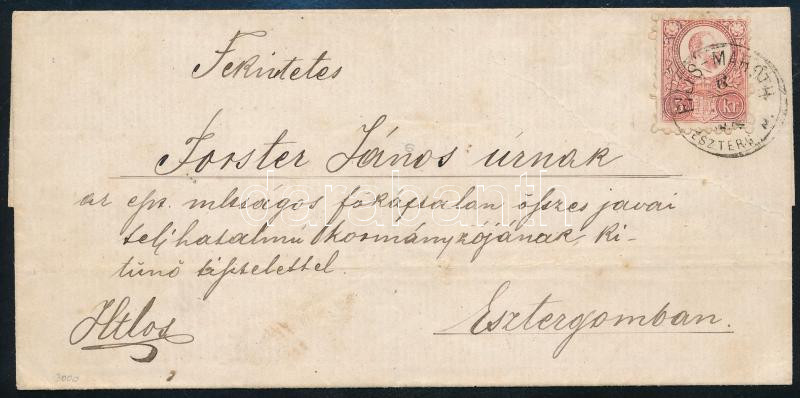 Fekintetes
Forster János úrnak
az egri mltságos főkáptalan összes javai
teljhatalmú kormányzójának, ki-
tünő tisztelettel.
Esztergomban.
5 Kr
ESZTERG
darabanth
3000